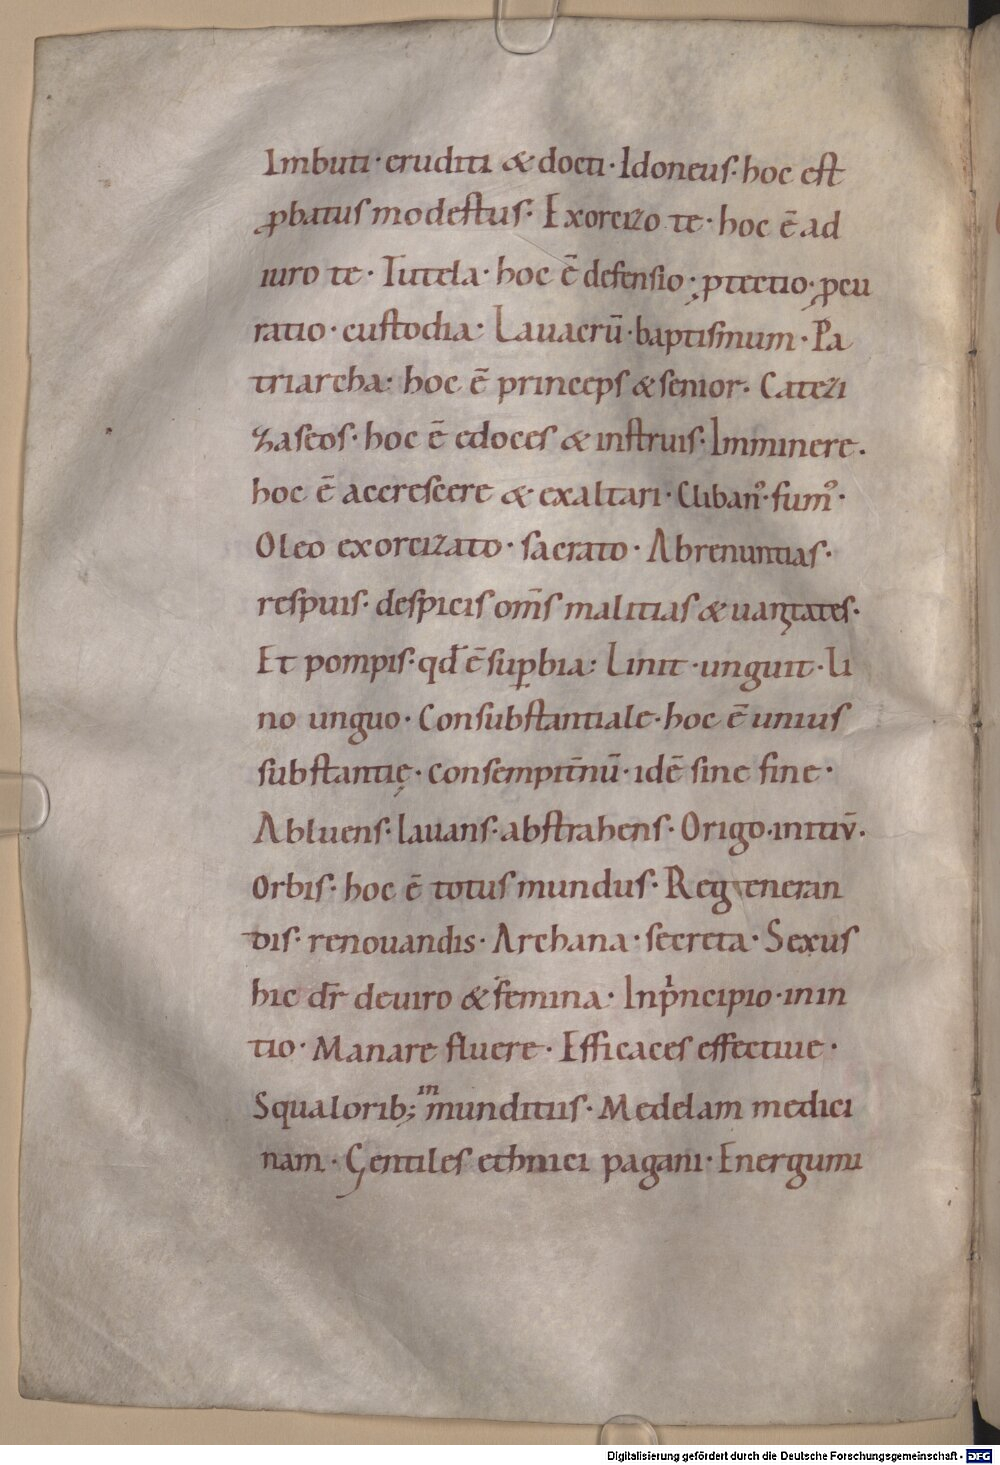 Imbuti· eruditi & docti· Idoneus· hoc est
ꝓbatus modestus· Exorcizo te· hoc ē ad
iuro te· Tutela· hoc ē defensio· ꝓtectio· ꝓcu
ratio· custodia· Lauacrū· baptismum· Pa
triarcha· hoc ē princeps & senior· Catezi
zas eos· hoc ē edoces & instruis· Imminere·
hoc ē accrescere & exaltari· Cliban᷒· fum᷒·
Oleo exorcizato· sacrato· Abrenuntias·
respuis· despicis om̄s malitias & uanitates·
Et pompis· qđ ē suꝑbia· Linit· unguit· Li
no unguo· Consubstantiale· hoc ē unius
substantię· consempit̄nū· idē sine fine·
Abluens· lauans· abstrahens· Origo· initiū·
Orbis· hoc ē totus mundus· Regeneran
dis· renouandis· Archana· secreta· Sexus
hic dr̄ de uiro & femina· In pͥncipio· in in
tio· Manare fluere· Efficaces effectiue·
Squalorib; inmunditiis· Medelam medici
nam· Gentiles ethnici pagani· Energumi
Digitalisierung gefördert durch die Deutsche Forschungsgemeinschaft - DFG